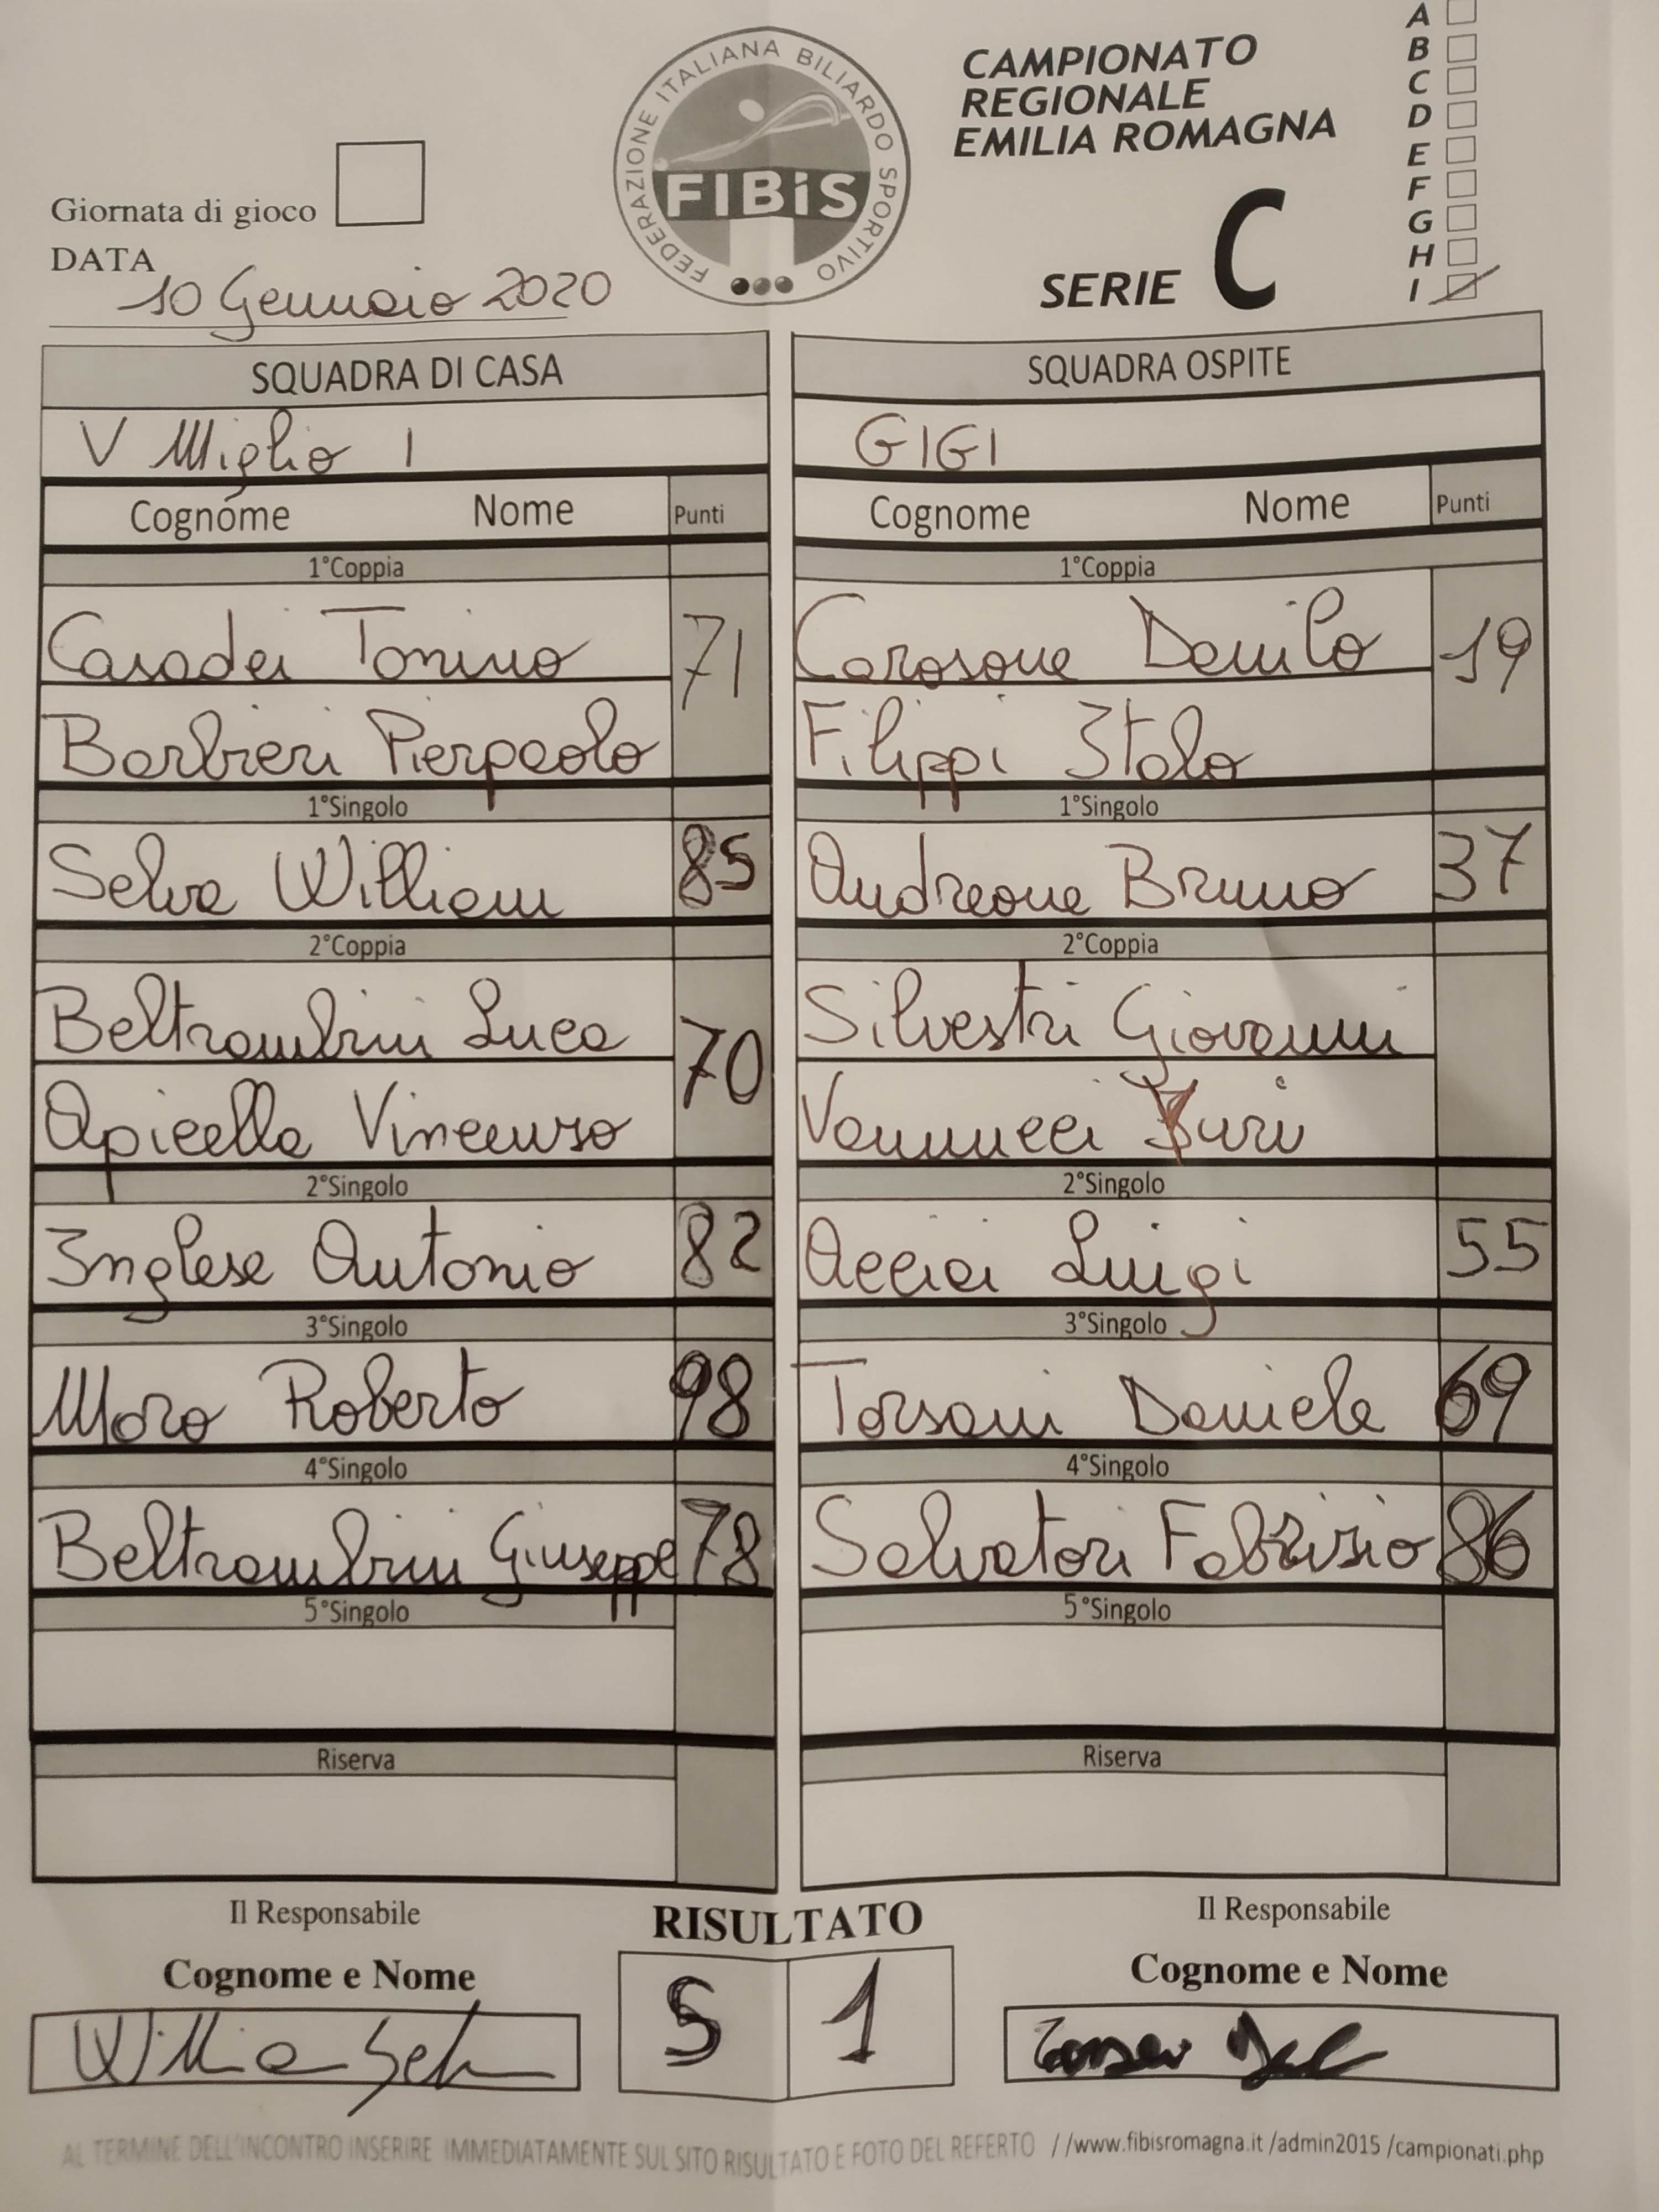 FEDERAZIONE ITALIANA BILIARDO SPORTIVO
FIBiS
CAMPIONATO
REGIONALE
EMILIA ROMAGNA
SERIE C
A
B
C
D
E
F
G
H
I
Giornata di gioco
DATA
10 Gennaio 2020
SQUADRA DI CASA
V Miglio 1
Cognome Nome Punti
1°Coppia
Casadei Tonino 71
Barbieri Pierpaolo
1°Singolo
Selva William 85
2°Coppia
Beltrambini Luca 70
Apicella Vincenzo
2°Singolo
Inglese Antonio 82
3°Singolo
Moro Roberto 98
4°Singolo
Beltrambini Giuseppe 78
5°Singolo
Riserva
SQUADRA OSPITE
GIGI
Cognome Nome Punti
1°Coppia
Carosone Danilo 19
Filippi Italo
1°Singolo
Andreone Bruno 37
2°Coppia
Silvestri Giovanni
Vannucci Juri
2°Singolo
Acciai Luigi 55
3°Singolo
Torsani Daniele 69
4°Singolo
Salvatori Fabrizio 86
5°Singolo
Riserva
Il Responsabile
Cognome e Nome
Willia Selva
RISULTATO
5 1
Il Responsabile
Cognome e Nome
AL TERMINE DELL'INCONTRO INSERIRE IMMEDIATAMENTE SUL SITO RISULTATO E FOTO DEL REFERTO //www.fibisromagna.it /admin2015 /campionati.php